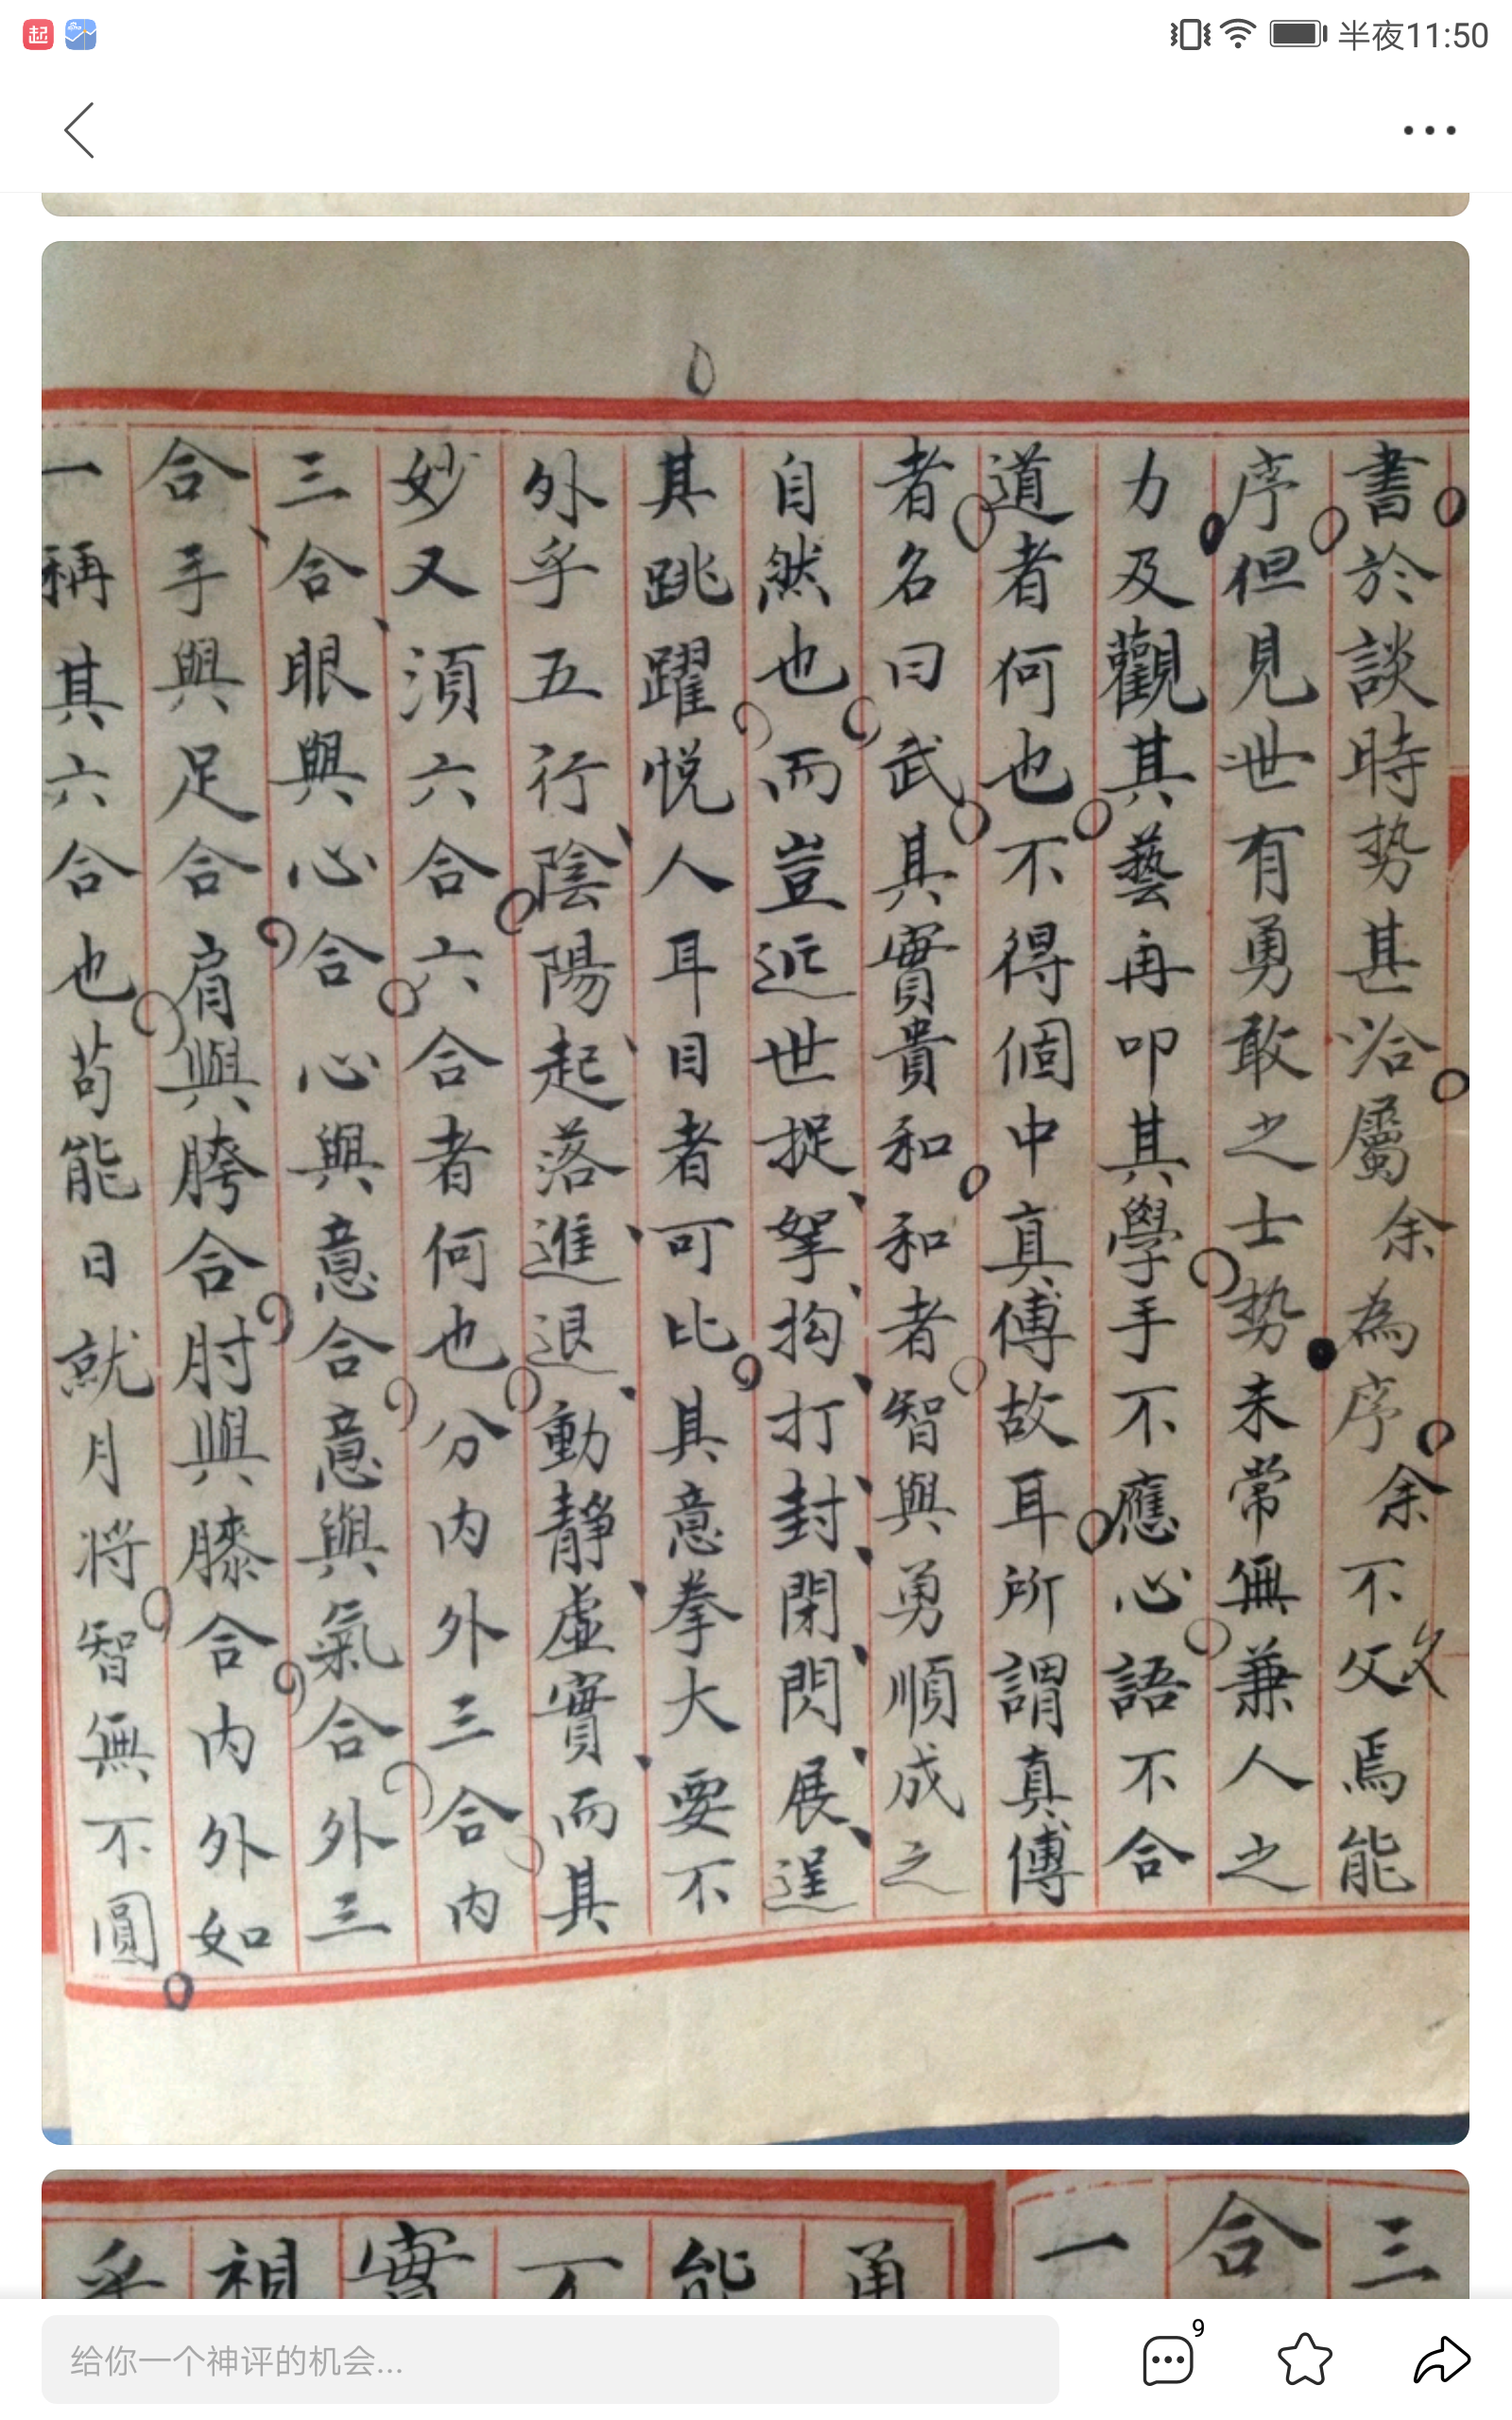 起
半夜11:50
書於談時势甚洽屬余為序余不文焉能
序但見世有勇敢之士势未常無兼人之
力及觀其藝再叩其學手不應心語不合
道者何也不得個中真傳故耳所謂真傳
者名曰武其實貴和和者智與勇順成之
自然也而豈近世捉拏抅打封閉閃展逞
其跳躍悦人耳目者可比其意拳大要不
外乎五行陰陽起落進退動靜虛實而其
妙又湏六合六合者何也分内外三合内
三合眼與心合心與意合意與氣合外三
合手與足合肩與胯合肘與膝合内外如
一稱其六合也苟能日就月將智無不圓
三
合
一
能
不
實
視
乎
给你一个神评的机会...
9